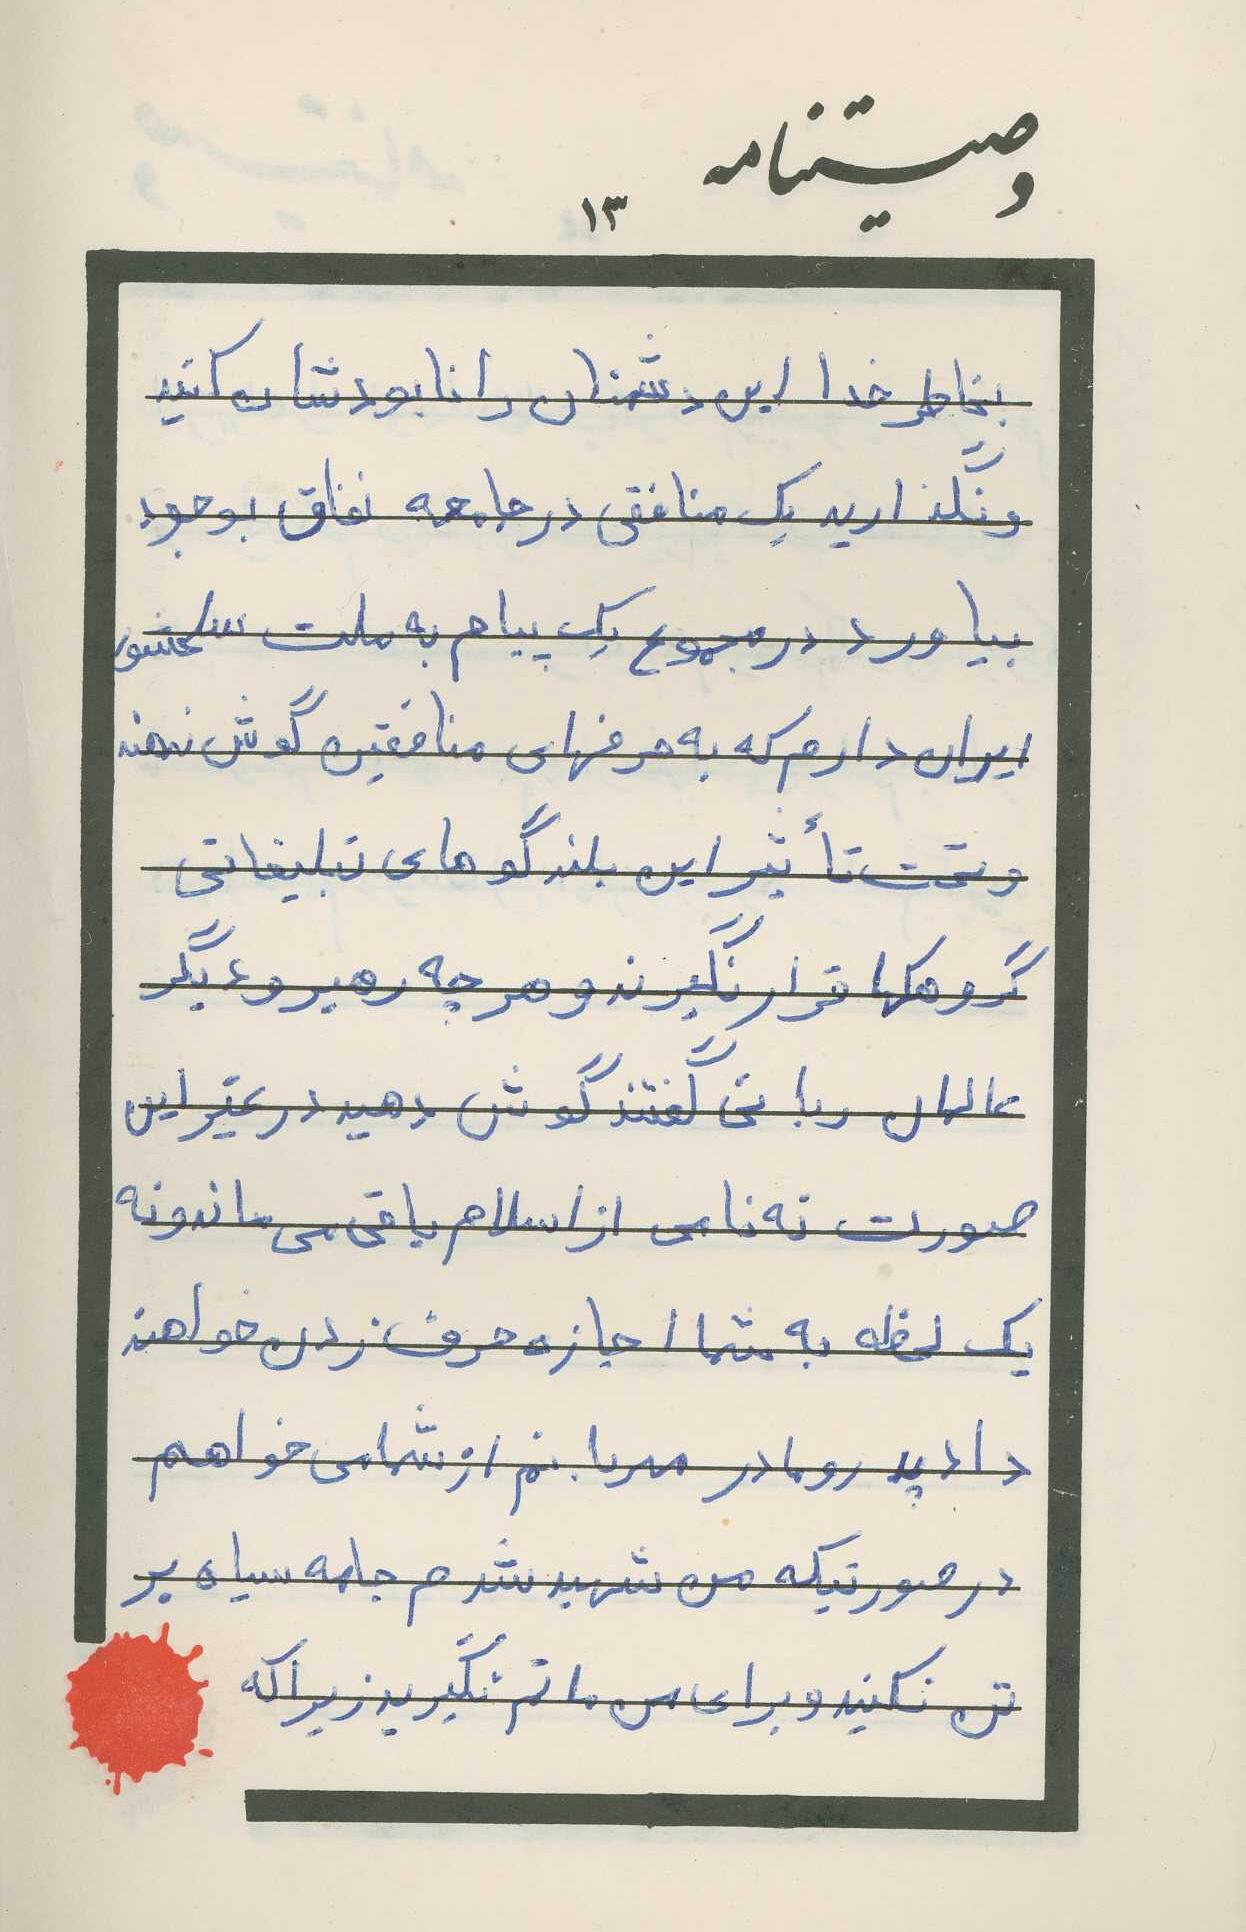 وصیتنامه
۱۳
بخاطر خدا این دشمنان را نابودشان کنید
ونگذارید یک منافقی در جامعه نفاق بوجود
بیاورد در مجموع یک پیام به ملت سلحشور
ایران دارم که به حرفهای منافقین گوش ندهند
وتحت تأثیر این بلندگوهای تبلیغاتی
گروهکها قرار نگیرند و هر چه رهبر و دیگر
عالمان ربانی گفتند گوش دهید در غیر این
صورت نه نامی از اسلام باقی می ماند و نه
یک لحظه به شما اجازه حرف زدن خواهند
داد پدر و مادر مهربانم از شما می خواهم
در صورتیکه من شهید شدم جامه سیاه بر
تن نکنید و برای من ماتم نگیرید زیرا که